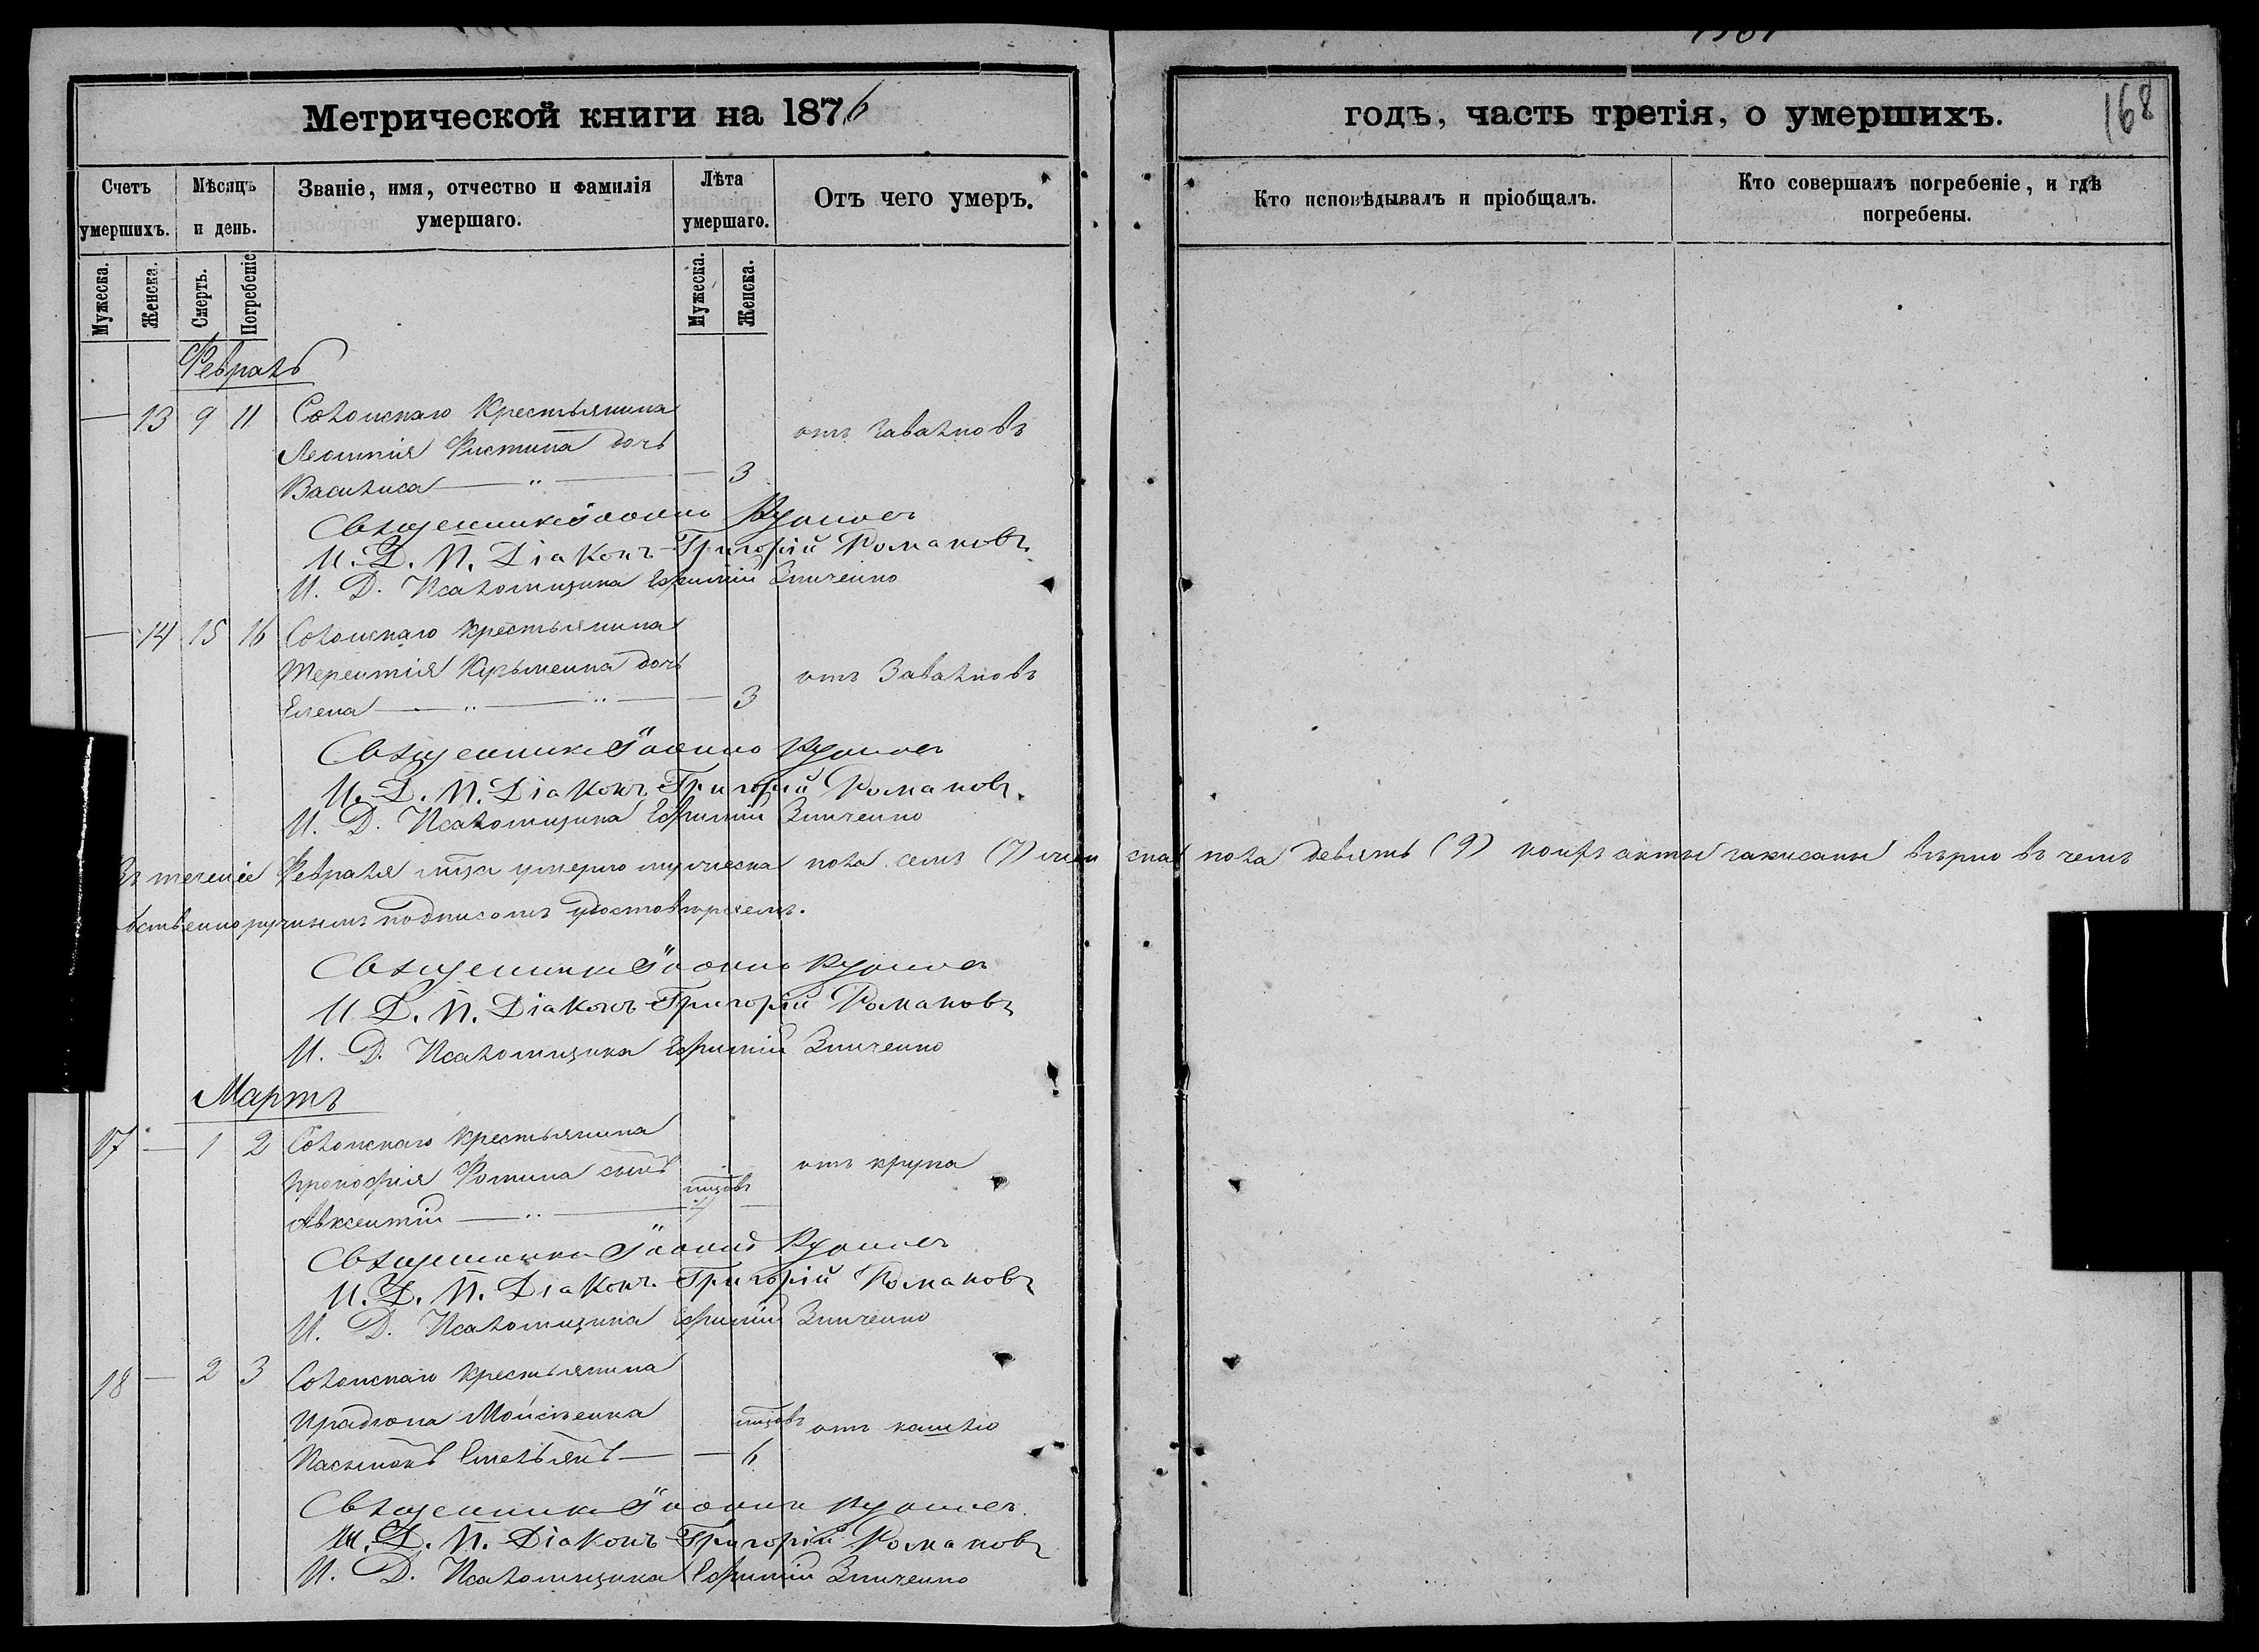 Метрической книги на 1876
годъ, часть третія, о умершихъ.
168
Счетъ умершихъ.
Мѣсяцъ и день.
Званіе, имя, отчество и фамилія умершаго.
Лѣта умершаго.
Отъ чего умеръ.
Кто исповѣдывалъ и пріобщалъ.
Кто совершалъ погребеніе, и гдѣ погребены.
Мужеска.
Женска.
Смерть.
Погребеніе
Мужеска.
Женска.
Февраль
— 13 9 11 крестьянина
Леонтія дочь отъ завалковъ
Василиса — " — — 3
Священникъ Іоаннъ
И. Д. П. Діаконъ Григорій Романовъ
И. Д. Псаломщика Ефимій Зинченко
— 14 15 16 крестьянина
Терентія Кузьменка дочь отъ Завалковъ
Елена — " — " — — 3
Священникъ Іоаннъ
И. Д. П. Діаконъ Григорій Романовъ
И. Д. Псаломщика Ефимій Зинченко
Въ теченіе Февраля мца умерло мужеска пола семь (7) жен ска пола девять (9) акты записаны вѣрно въ чемъ
бственноручнымъ подписомъ удостовѣряемъ.
Священникъ Іоаннъ
И Д. П. Діаконъ Григорій Романовъ
И. Д. Псаломщика Ефимій Зинченко
Мартъ
17 — 1 2 крестьянина
Прокофія Фотина сынъ мцовъ отъ крупа
Авксентій — " — 7 —
Священникъ Іоаннъ
И. Д. П. Діаконъ Григорій Романовъ
И. Д. Псаломщика Ефимій Зинченко
18 — 2 3 крестьянина
Иродіона Мойсѣенка мцовъ отъ кашлю
Пасынокъ Емельянъ — — 6
Священникъ Іоаннъ
И. Д. П. Діаконъ Григорій Романовъ
И. Д. Псаломщика Ефимій Зинченко